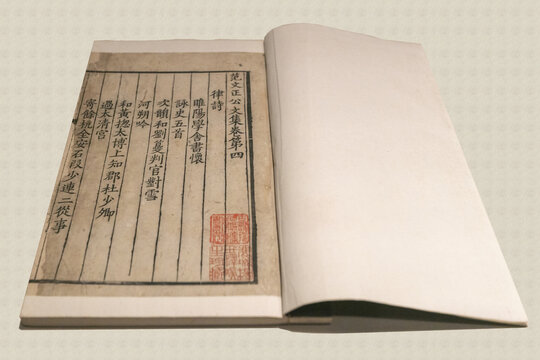 范文正公文集卷第四
律詩
睢陽學舍書懷
詠史五首
次韻和劉夔判官對雪
河朔吟
和黃揔太博上知郡杜少卿
過太清宮
寄餘杭全安石段少連二從事